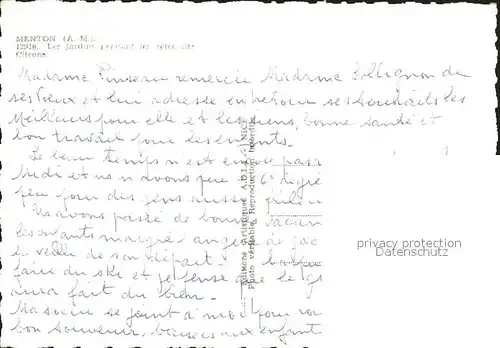 MENTON (A. M.)
12318. Les jardins pendant les fêtes des
Citrons.
Madame Pinseau remercie Madame Collignon de
ses vœux et lui adresse en retour ses souhaits les
Meilleurs pour elle et les siens, bonne santé et
bon travail pour les enfants.
Le beau temps n'est encore pass
Midi et ns n'avons que
peu pour des gens aussi frileu
Ns avons passé de bonnes vacan
les enfants malgré ange de Jac
la veille de son départ.
faire du ski et je pense que le g
aura fait du bien.
Ma sœur se joint à moi pour vo
bon souvenir, baisers aux enfant
Editions artistiques A.D.I.A. - NICE
Photo véritable. Reproduction interdite
privacy protection
www.ansichtskarten-center.de